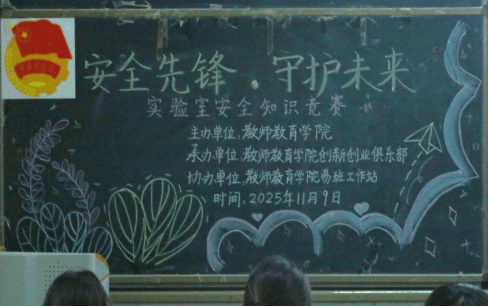 安全先锋·守护未来
实验室安全知识竞赛
主办单位:教师教育学院
承办单位:教师教育学院创新创业俱乐部
协办单位:教师教育学院易班工作站
时间:2025年11月9日